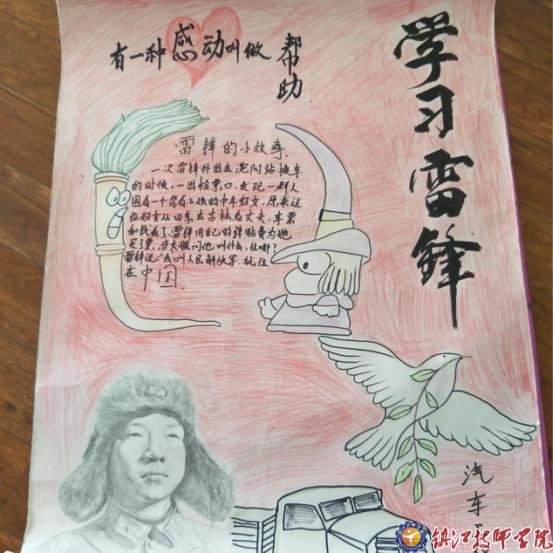 有一种感动叫做
帮助
学习雷锋
雷锋的小故事
一次雷锋外出在沈阳站换车
的时候，一出检票口，发现一群人
围着一个背着小孩的中年妇女，原来这
位妇女从山东去吉林看丈夫，车票
和钱丢了，雷锋用自己的津贴费为她
买了票，当大嫂问他叫什么，住哪？
雷锋说：我叫人民解放军，就住
在中国
汽车
镇江技师学院